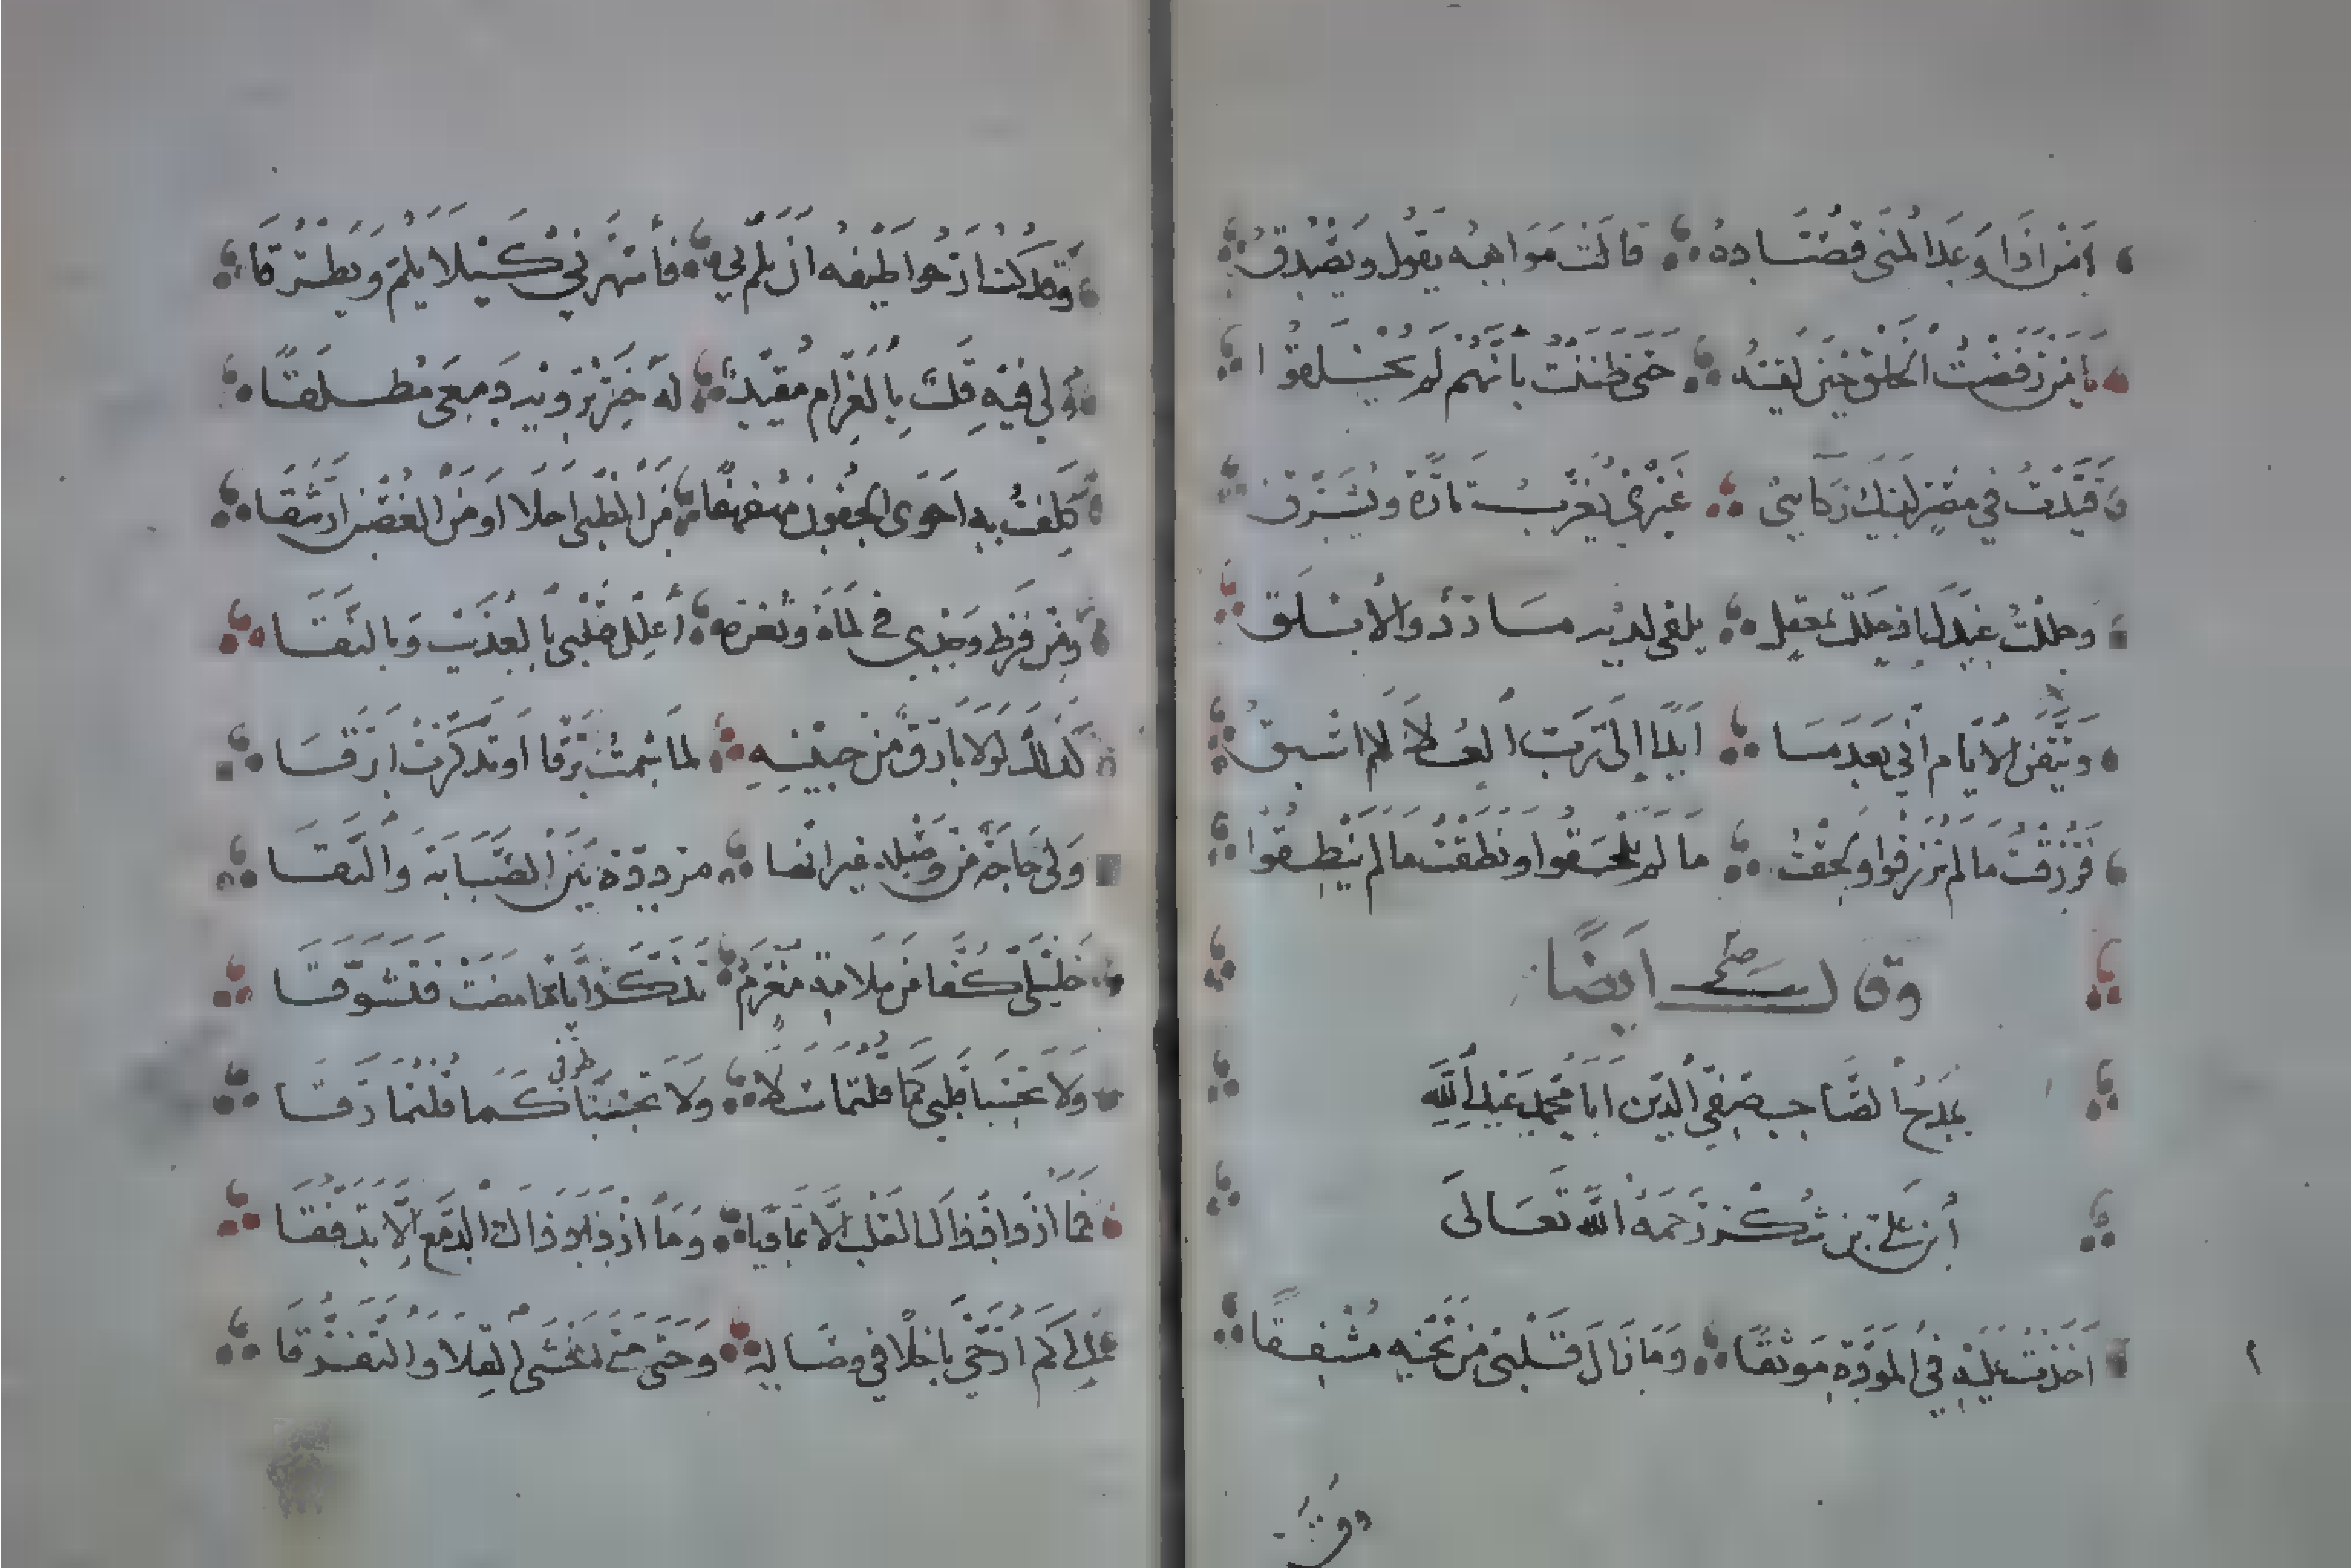 يا من اذا وعد المنى قصاده قالت مواهبه يقول ويصدق
يا من رفضت الخلق حين لقيته حتى ظننت بانهم لم يخلقوا
وقيدت في مصر اليك ركائبي غيري يغرب تارة ويشرق
وحللت عندك اذ حللت بمعقل يلقى لديه مارد والابلق
وتيقن الايام اني بعدها ابدا الى رتب العلا لا اسبق
فرزقت ما لم يرزقوا ولحقت ما لم يلحقوا ونطقت ما لم ينطقوا
وقال ايضا
يمدح الصاحب صفي الدين ابا محمد عبد الله
ابن علي بن شكر رحمه الله تعالى
اخذت عليه في المودة موثقا وما زال قلبي من تجنيه مشفقا
وقد
وقد كنت ارجوا طيفه ان يلم بي فأسهرني كيلا يلم ويطرقا
ولي فيه قلب بالغرام مقيد له خبر يرويه دمعي مطلقا
كلفت به احوى الجفون مهفهفا من الظبي احلا او من الغصن ارشقا
ومن فرط وجدي في لماه وثغره أعلل قلبي بالعذيب وبالنقا
كذلك لولا بارق من جبينه لما شمت برقا او تذكرت ابرقا
ولي حاجة من وصله غير انها مرددة بين الصبابة والتقا
خليلي كفا من ملامة مغرم تذكر اياما مضت فتشوقا
ولا تحسبا قلبي كما قلتما سلا ولا تحسبا طرفي كما قلتما رقا
فما ازداد ذاك القلب الا تماديا وما ازداد ذاك الدمع الا تدفقا
الى كم ارجي باخلا في وصاله وحتى متى اخشى القلا والتفرقا